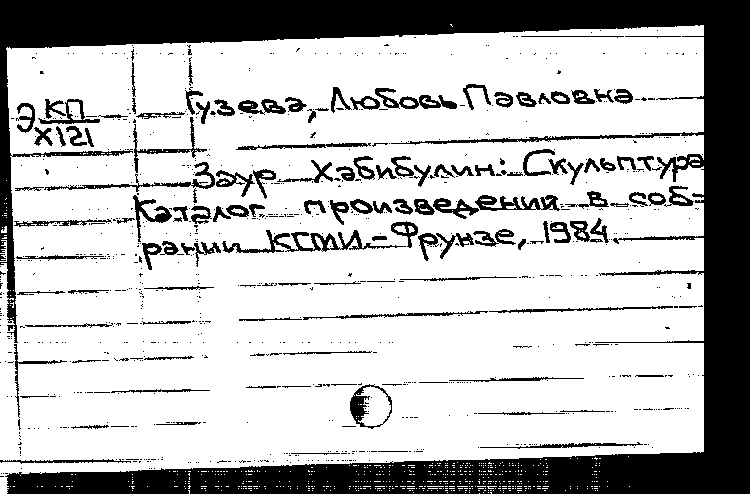 Э КП
Х121
Гузева, Любовь Павловна
Заур Хабибулин: Скульптура
Каталог произведений в соб=
рании КГМИ.-Фрунзе, 1984.